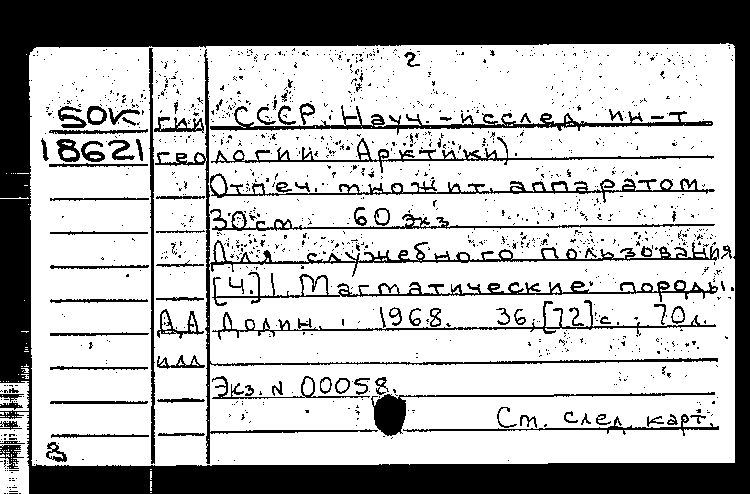 2
SOK гии СССР. Науч.-исслед. ин-т
18621 геологии Арктики).
Отпеч. множит. аппаратом.
30 см. 60 экз.
Для служебного пользования.
[Ч.] 1. Магматические породы.
Д.А. Додин. 1968. 36, [72] с.; 70 л.
илл
Экз. N 00058.
См. след. карт.